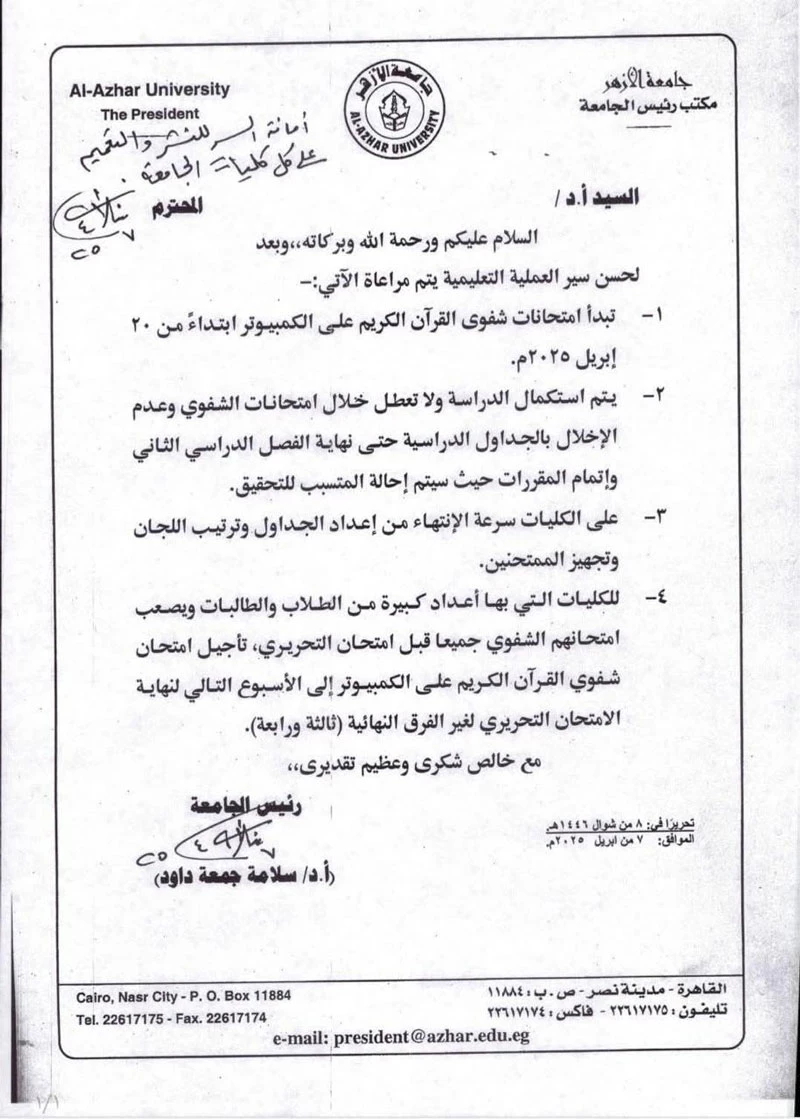 Al-Azhar University
The President
جامعة الأزهر
AL-AZHAR UNIVERSITY
جامعة الأزهر
مكتب رئيس الجامعة
أمانة السر للنشر والتعميم
على كل كليات الجامعة
السيد أ.د / المحترم
السلام عليكم ورحمة الله وبركاته،،وبعد
لحسن سير العملية التعليمية يتم مراعاة الآتي:-
١- تبدأ امتحانات شفوى القرآن الكريم على الكمبيوتر ابتداءً من ٢٠
إبريل ٢٠٢٥م.
٢- يتم استكمال الدراسة ولا تعطل خلال امتحانات الشفوي وعدم
الإخلال بالجداول الدراسية حتى نهاية الفصل الدراسي الثاني
وإتمام المقررات حيث سيتم إحالة المتسبب للتحقيق.
٣- على الكليات سرعة الإنتهاء من إعداد الجداول وترتيب اللجان
وتجهيز الممتحنين.
٤- للكليات التي بها أعداد كبيرة من الطلاب والطالبات ويصعب
امتحانهم الشفوي جميعا قبل امتحان التحريري، تأجيل امتحان
شفوي القرآن الكريم على الكمبيوتر إلى الأسبوع التالي لنهاية
الامتحان التحريري لغير الفرق النهائية (ثالثة ورابعة).
مع خالص شكرى وعظيم تقديرى،،
رئيس الجامعة
(أ.د/ سلامة جمعة داود)
تحريرًا في: ٨ من شوال ١٤٤٦هـ
الموافق: ٧ من ابريل ٢٠٢٥م.
القاهرة - مدينة نصر - ص.ب: ١١٨٨٤
تليفون: ٢٢٦١٧١٧٥ - فاكس: ٢٢٦١٧١٧٤
Cairo, Nasr City - P. O. Box 11884
Tel. 22617175 - Fax. 22617174
e-mail: president@azhar.edu.eg
١/١